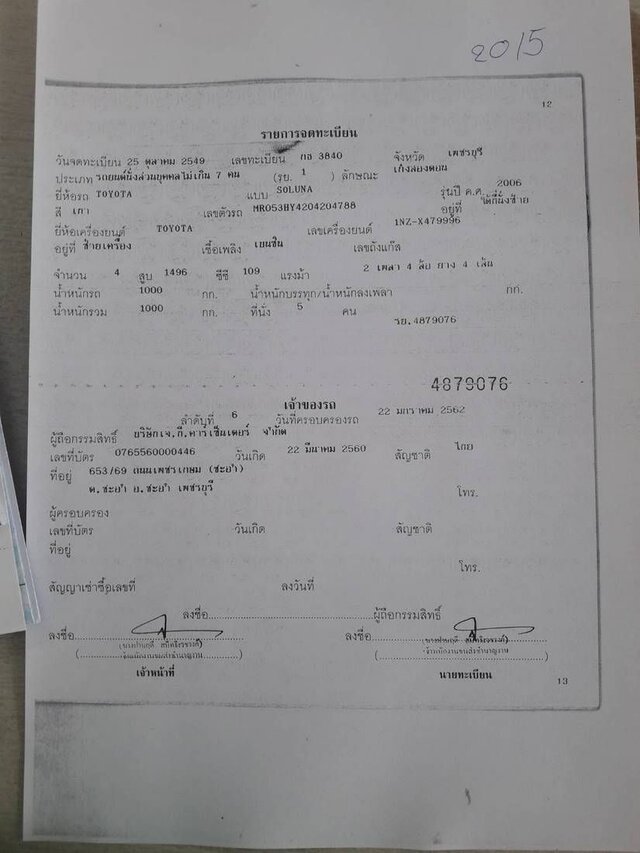 2015
12
รายการจดทะเบียน
วันจดทะเบียน 25 ตุลาคม 2549 เลขทะเบียน กอ 3840 จังหวัด เพชรบุรี
ประเภท รถยนต์นั่งส่วนบุคคลไม่เกิน 7 คน (รย. 1 ) ลักษณะ เก๋งสองตอน
ยี่ห้อรถ TOYOTA แบบ SOLUNA รุ่นปี ค.ศ. 2006
สี เทา เลขตัวรถ MR053HY4204204788 อยู่ที่ ใต้ที่นั่งซ้าย
ยี่ห้อเครื่องยนต์ TOYOTA เลขเครื่องยนต์ 1NZ-X479996
อยู่ที่ ซ้ายเครื่อง เชื้อเพลิง เบนซิน เลขถังแก๊ส
จำนวน 4 สูบ 1496 ซีซี 109 แรงม้า 2 เพลา 4 ล้อ ยาง 4 เส้น
น้ำหนักรถ 1000 กก. น้ำหนักบรรทุก/น้ำหนักลงเพลา กก.
น้ำหนักรวม 1000 กก. ที่นั่ง 5 คน
รย.4879076
4879076
เจ้าของรถ
ลำดับที่ 6 วันที่ครอบครองรถ 22 มกราคม 2562
ผู้ถือกรรมสิทธิ์ บริษัทเจ.กี.คาร์เซ็นเตอร์ จำกัด
เลขที่บัตร 0765560000446 วันเกิด 22 มีนาคม 2560 สัญชาติ ไทย
ที่อยู่ 653/69 ถนนเพชรเกษม (ชะอำ)
ต.ชะอำ อ.ชะอำ เพชรบุรี โทร.
ผู้ครอบครอง
เลขที่บัตร วันเกิด สัญชาติ
ที่อยู่
โทร.
สัญญาเช่าซื้อเลขที่ ลงวันที่
ลงชื่อ ผู้ถือกรรมสิทธิ์
ลงชื่อ ลงชื่อ
เจ้าหน้าที่ นายทะเบียน
13